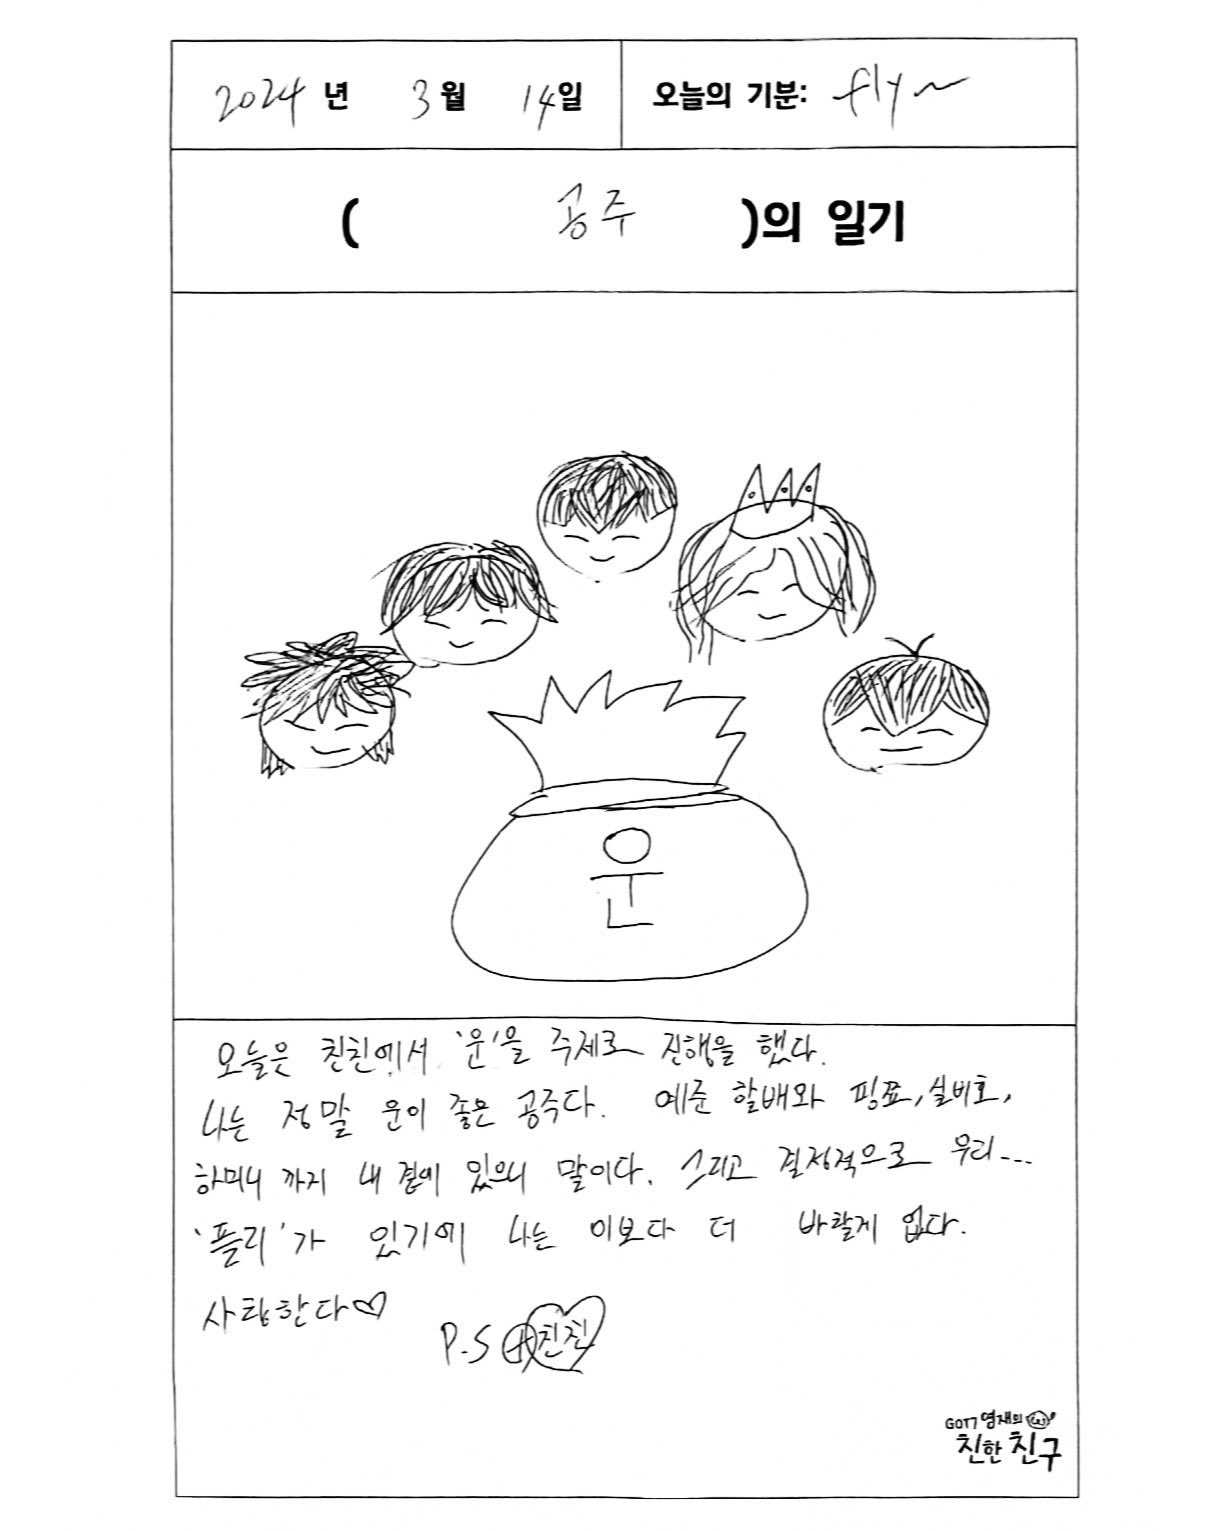 2024년 3월 14일 오늘의 기분: fly~
( 공주 )의 일기
운
오늘은 친친에서 '운'을 주제로 진행을 했다.
나는 정말 운이 좋은 공주다. 예준 할배와 핑뾰, 실비호,
하미니 까지 내 곁에 있으니 말이다. 그리고 결정적으로 우리...
'플리'가 있기에 나는 이보다 더 바랄게 없다.
사랑한다♡
P.S 친친
GOT7 영재의
친한 친구